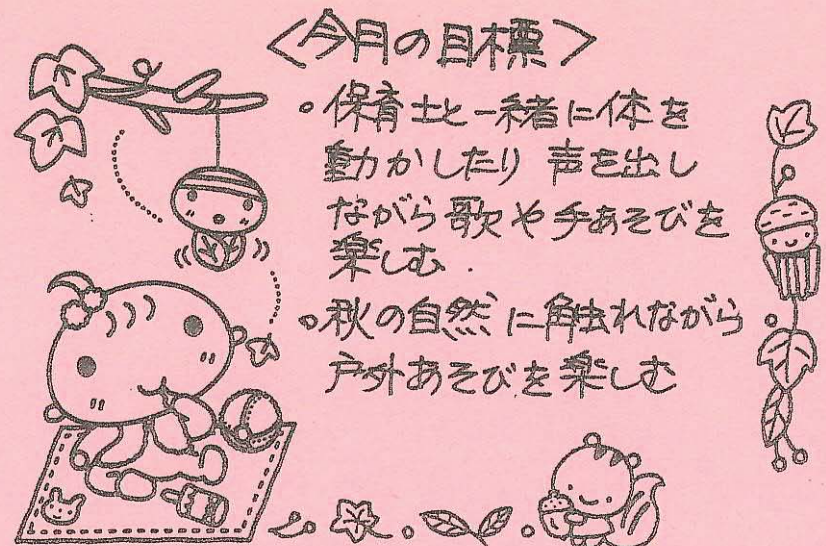 <今月の目標>
。保育士と一緒に体を
動かしたり 声を出し
ながら歌や手あそびを
楽しむ.
。秋の自然に触れながら
戸外あそびを楽しむ